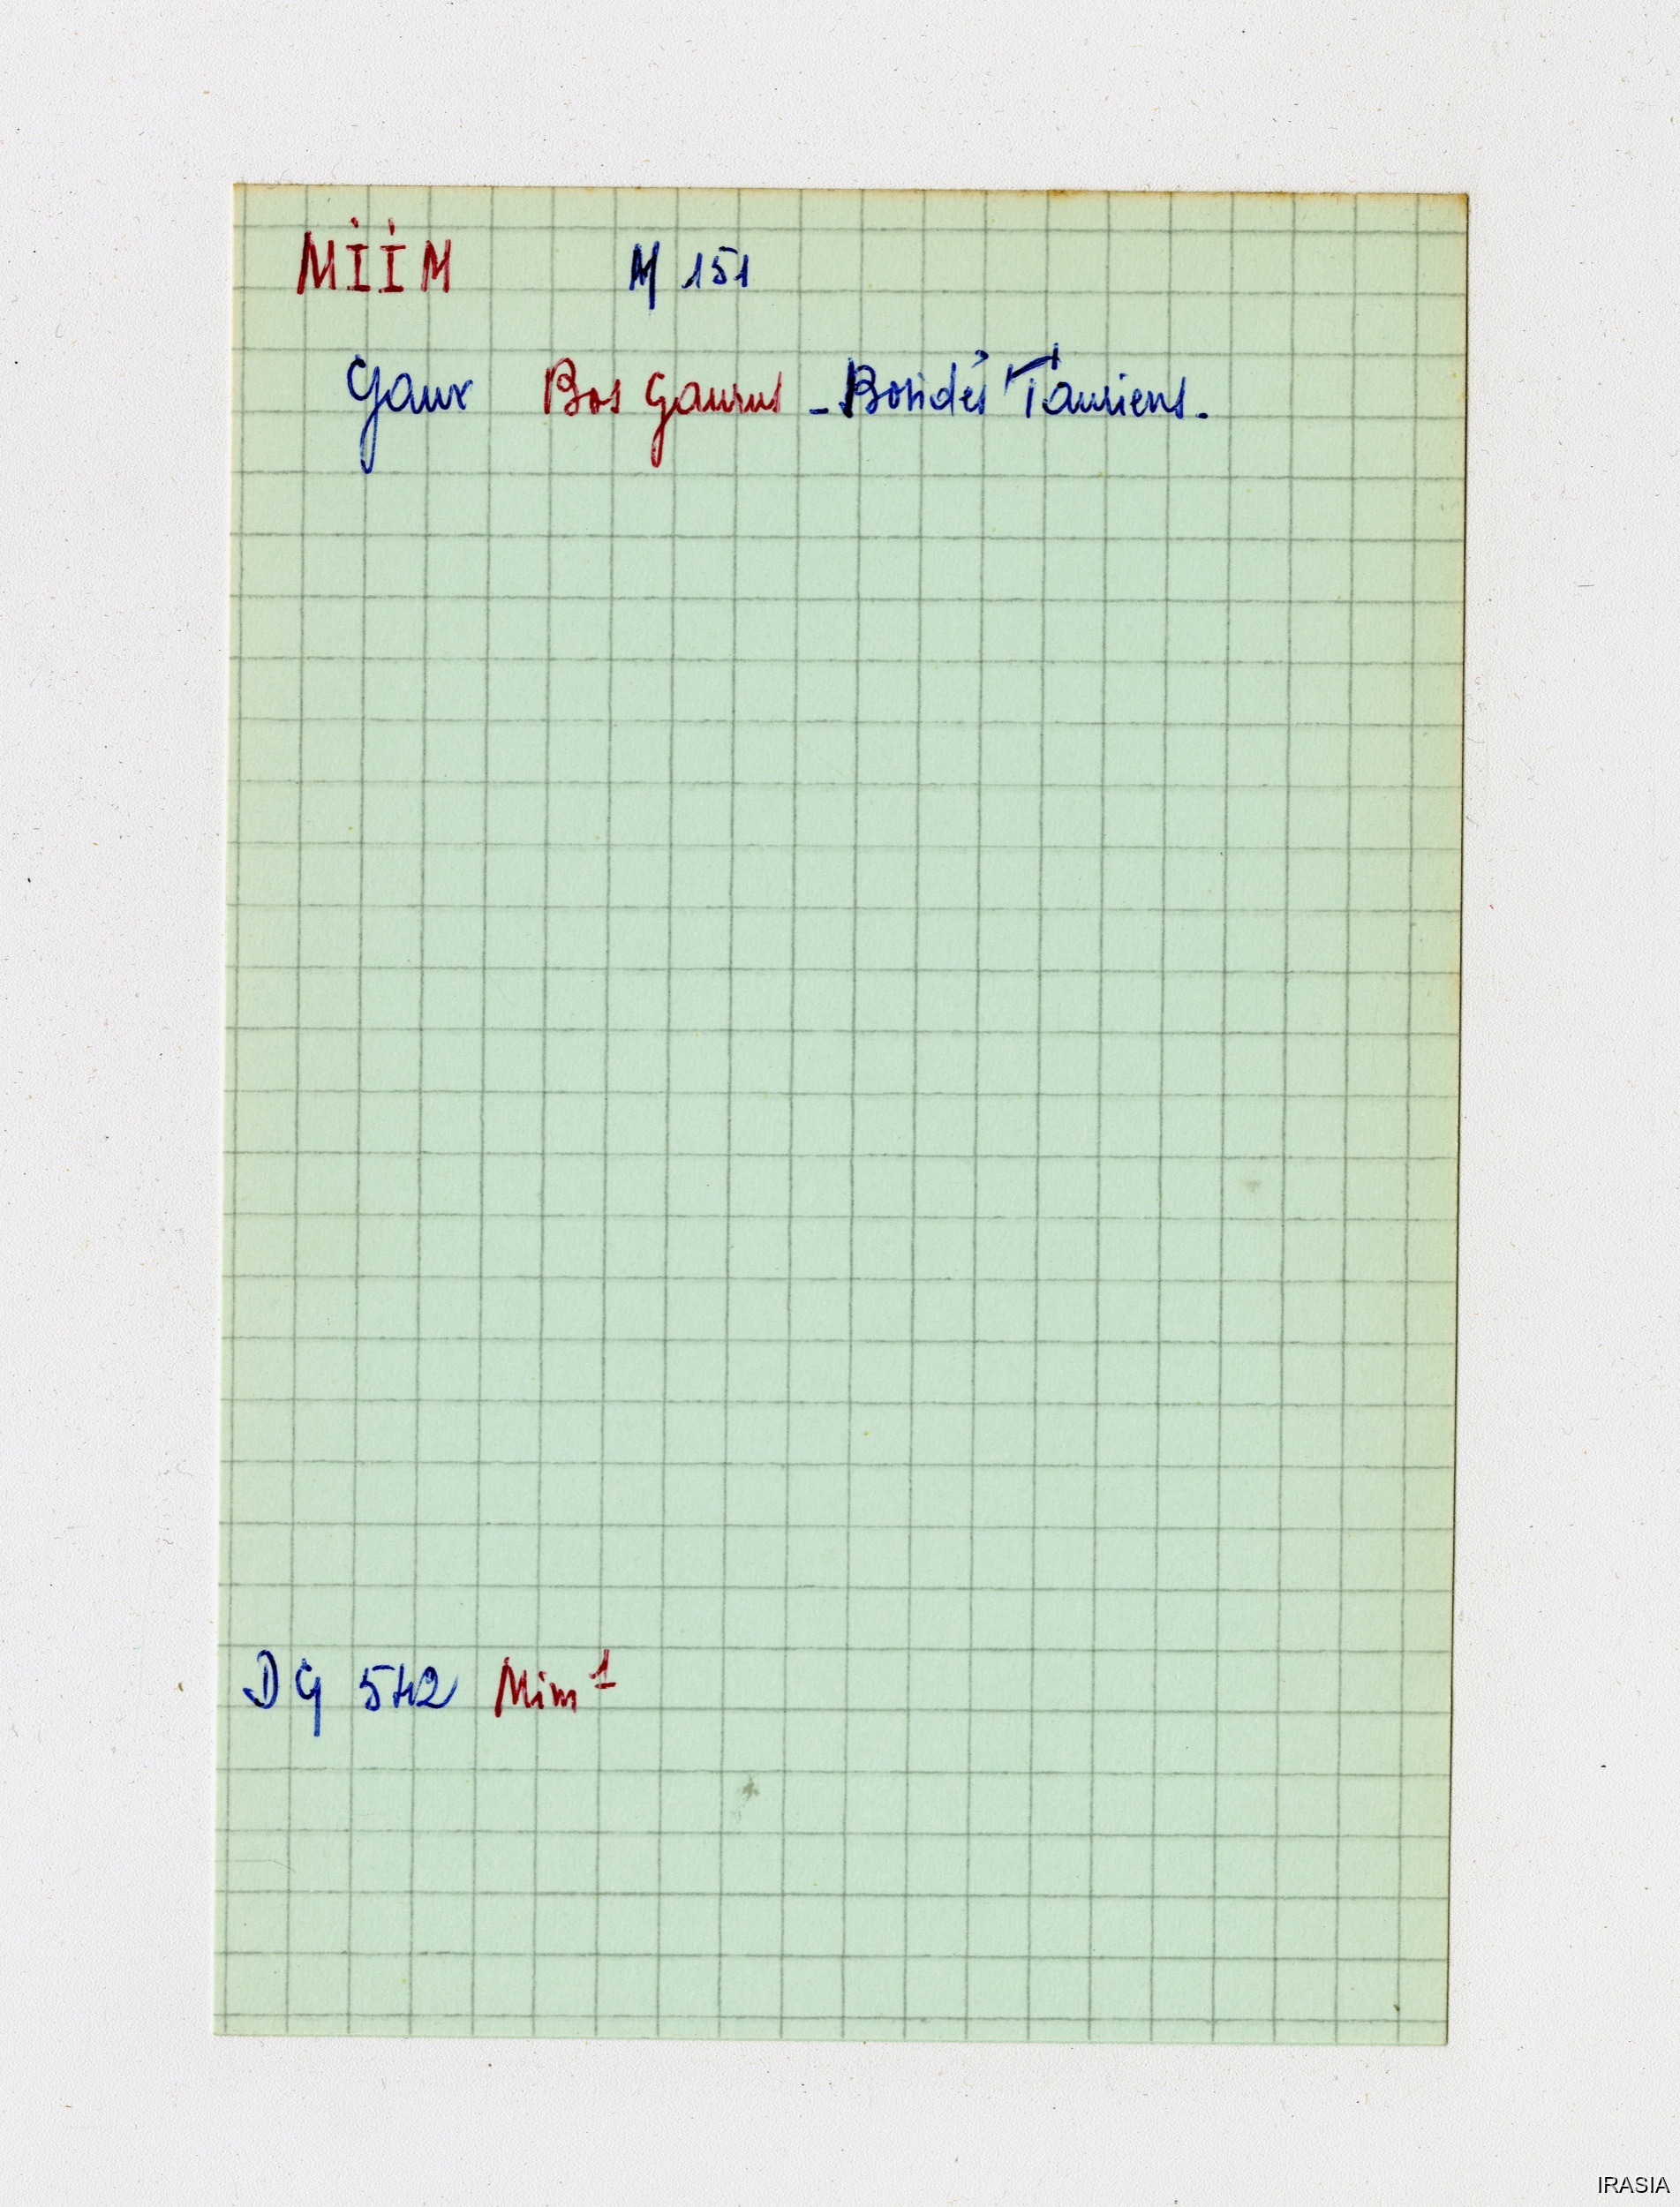 MİİM M 151
Gaur Bos Gaurus - Bovidés Tauriens.
DG 542 Mim¹
IRASIA